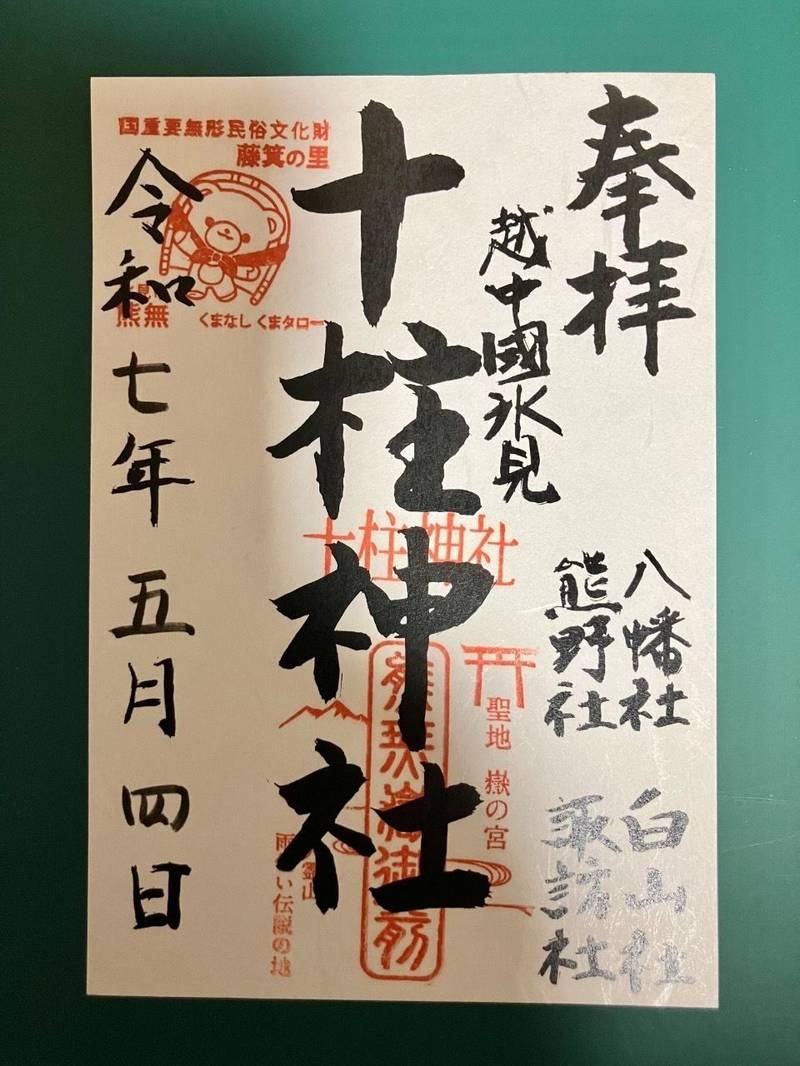 奉拝
越中國氷見
八幡社
熊野社
白山社
諏訪社
十柱神社
十柱神社
聖地 嶽の宮
霊山
伝説の地
国重要無形民俗文化財
藤箕の里
熊無
くまなし くまタロー
令和七年五月四日